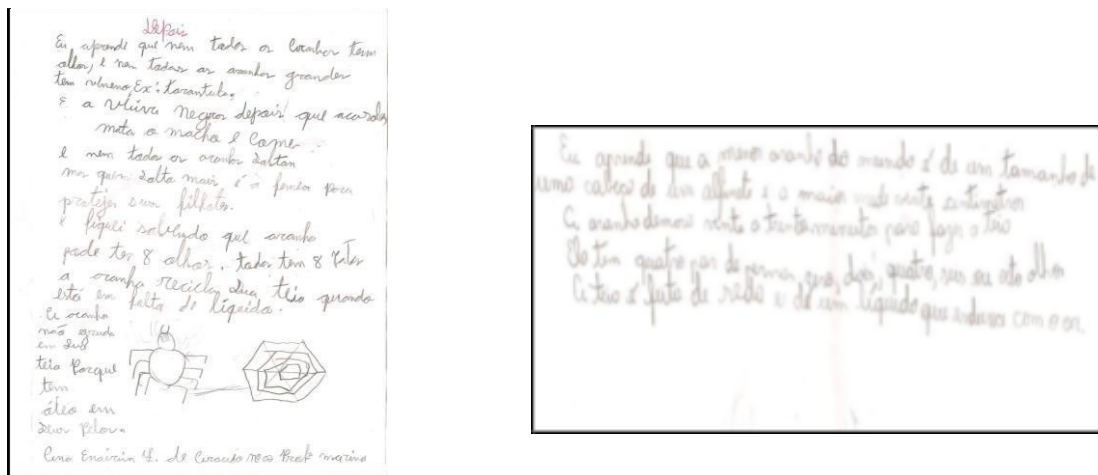 Depois
Eu aprendi que nem todas as aranhas tem
olhos, e nem todas as aranhas grandes
tem veneno, Ex: tarantula,
E a viúva negra depois que acasala
mata o macho e come
e nem todas as aranhas saltam
mas quem salta mais é a femia para
proteger seus filhotes.
e fiquei sabendo que aranha
pode ter 8 olhos, todas tem 8 patas
a aranha recicla sua teia quando
está em falta de líquido.
A aranha
não gruda
em sua
teia Porque
tem
óleo em
seus pelos.
Prof marina
Eu aprendi que a menor aranha do mundo é de um tamanho de
uma cabeça de um alfinete e a maior mede vinte sentimetros
A aranha demora vinte a trinta minutos para fazer a teia
Ela tem quatro par de pernas, zero, dois, quatro, seis ou oito olhos
A teia é feita de seda e de um líquido que endurece com o ar.